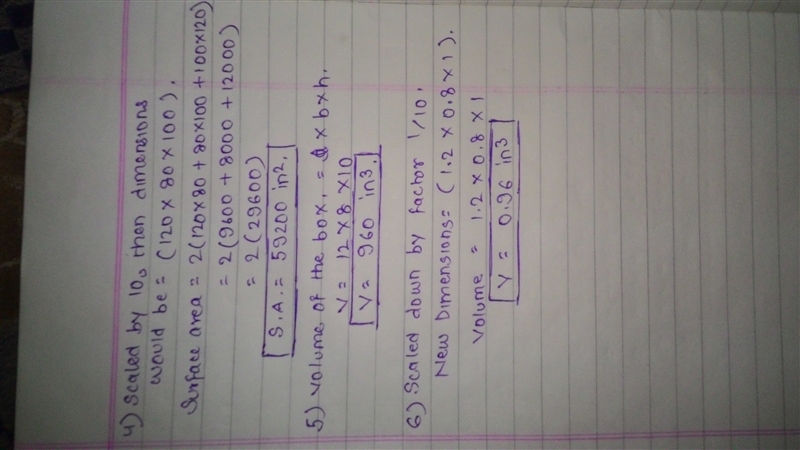 4) Scaled by 10, then dimensions
would be = (120 x 80 x 100).
Surface area = 2(120x80 + 80x100 + 100x120)
= 2(9600 + 8000 + 12000)
= 2(29600)
S.A. = 59200 in2.
5) Volume of the box. = l x b x h.
V = 12 x 8 x 10
V = 960 in3.
6) Scaled down by factor 1/10.
New Dimensions = (1.2 x 0.8 x 1).
Volume = 1.2 x 0.8 x 1
V = 0.96 in3